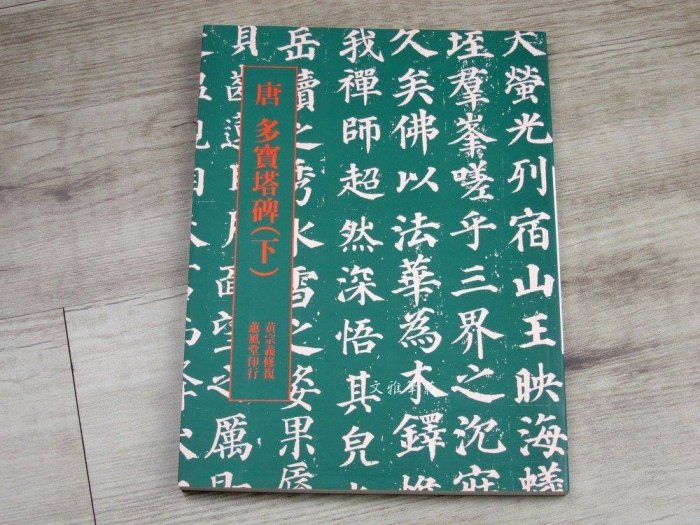 唐 多寶塔碑(下)
黃宗義修復
蕙風堂印行
螢光列宿山王映海蟻
垤羣峯嗟乎三界之沉寐
久矣佛以法華為木鐸惟
我禪師超然深悟其皃也
岳瀆之秀冰雪之姿果脣
貝齒蓮目月面望之厲即
文雅